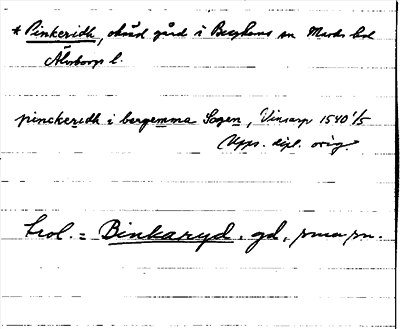 * Pinkeridh, okänd gård i Berghems sn Marks hd
Älvsborgs l.
pinckeridh i bergemma Sogen, Vinsarp 1540 1/5
Upps. dipl. orig.
trol. = Binkaryd, gd, samma sn.